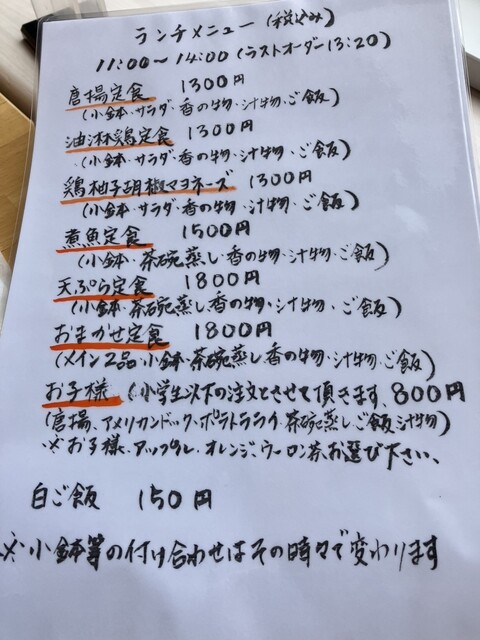 ランチメニュー(税込み)
11:00〜14:00(ラストオーダー13:20)
唐揚定食 1300円
(小鉢・サラダ・香の物・汁物・ご飯)
油淋鶏定食 1300円
(小鉢・サラダ・香の物・汁物・ご飯)
鶏柚子胡椒マヨネーズ 1300円
(小鉢・サラダ・香の物・汁物・ご飯)
煮魚定食 1500円
(小鉢・茶碗蒸し・香の物・汁物・ご飯)
天ぷら定食 1800円
(小鉢・茶碗蒸し香の物・汁物・ご飯)
おまかせ定食 1800円
(メイン2品・小鉢・茶碗蒸し香の物・汁物・ご飯)
お子様(小学生以下の注文とさせて頂きます、800円
(唐揚、アメリカンドック、ポテトフライ、茶碗蒸しご飯汁物)
※お子様、アップル、オレンジ、ウーロン茶お選び下さい、
白ご飯 150円
※小鉢等の付け合わせはその時々で変わります